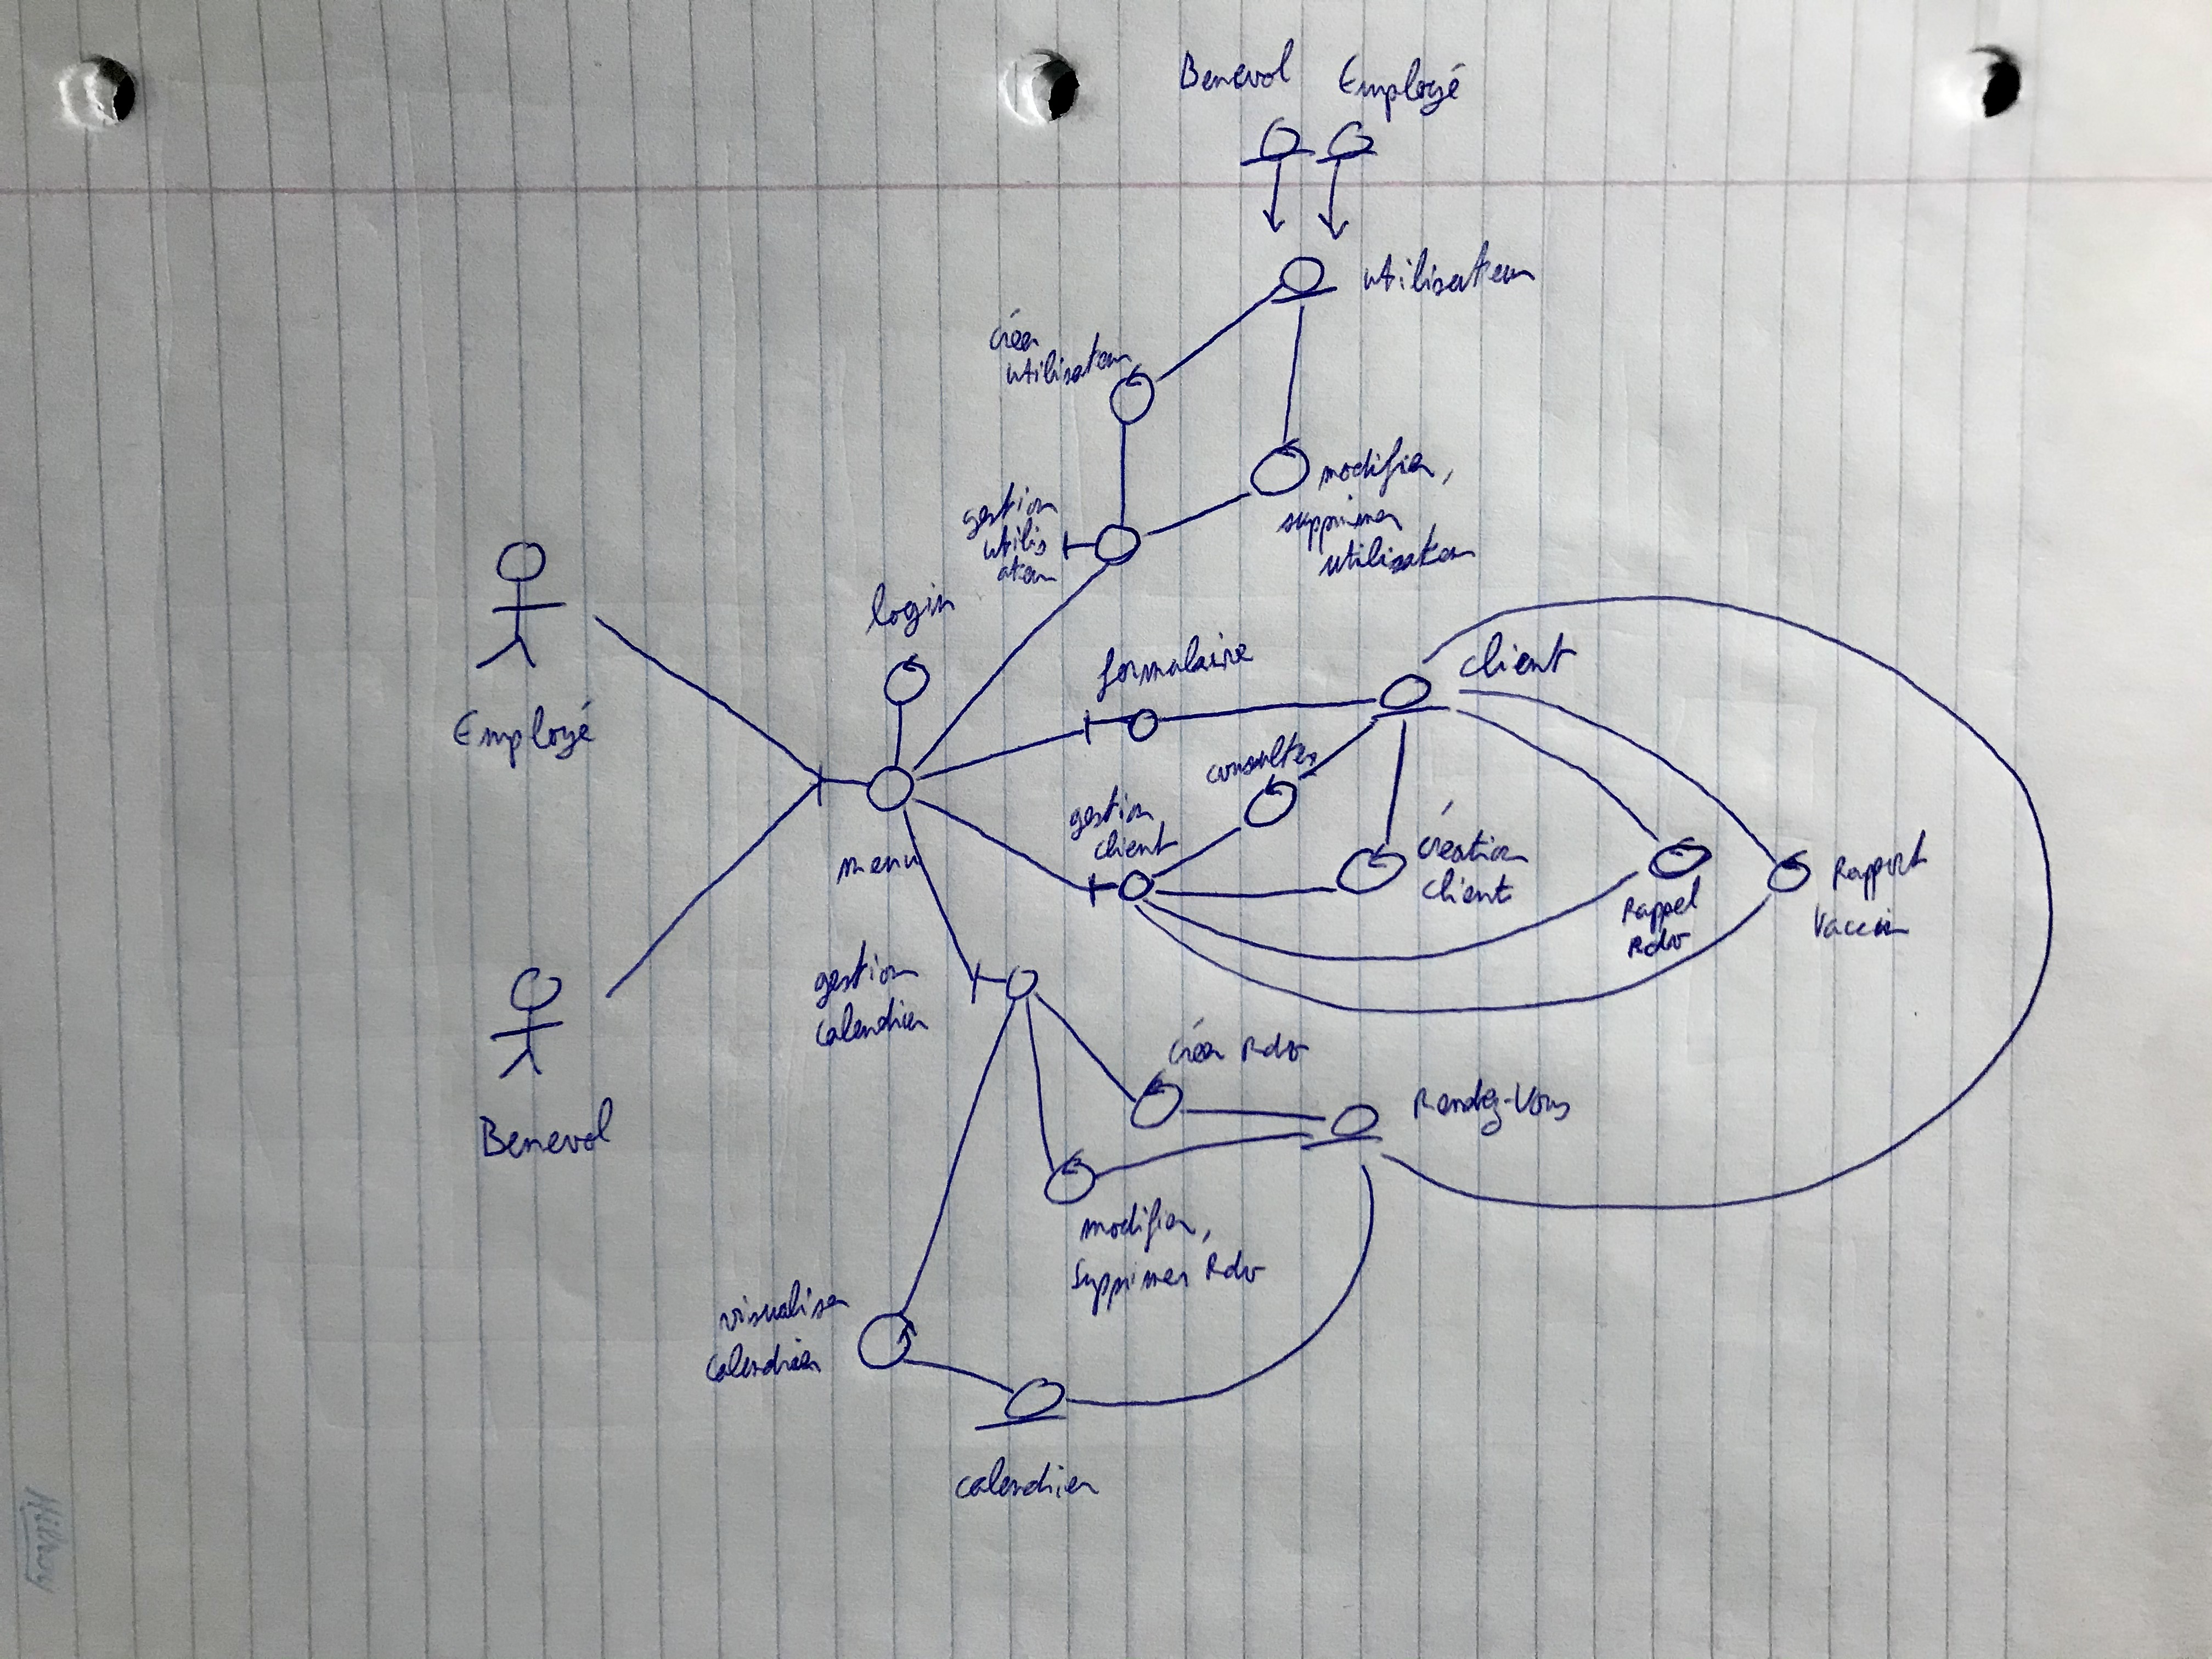 Benevol Employé
utilisateur
créer
utilisateur
modifier,
supprimer
utilisateur
gestion
utilis
ateur
login
Employé
formulaire
client
consulter
gestion
client
création
client
Rappel
Rdv
Rapport
Vaccin
menu
gestion
calendrier
Benevol
créer Rdv
Rendez-Vous
modifier,
Supprimer Rdv
visualiser
calendrier
calendrier
Hilroy